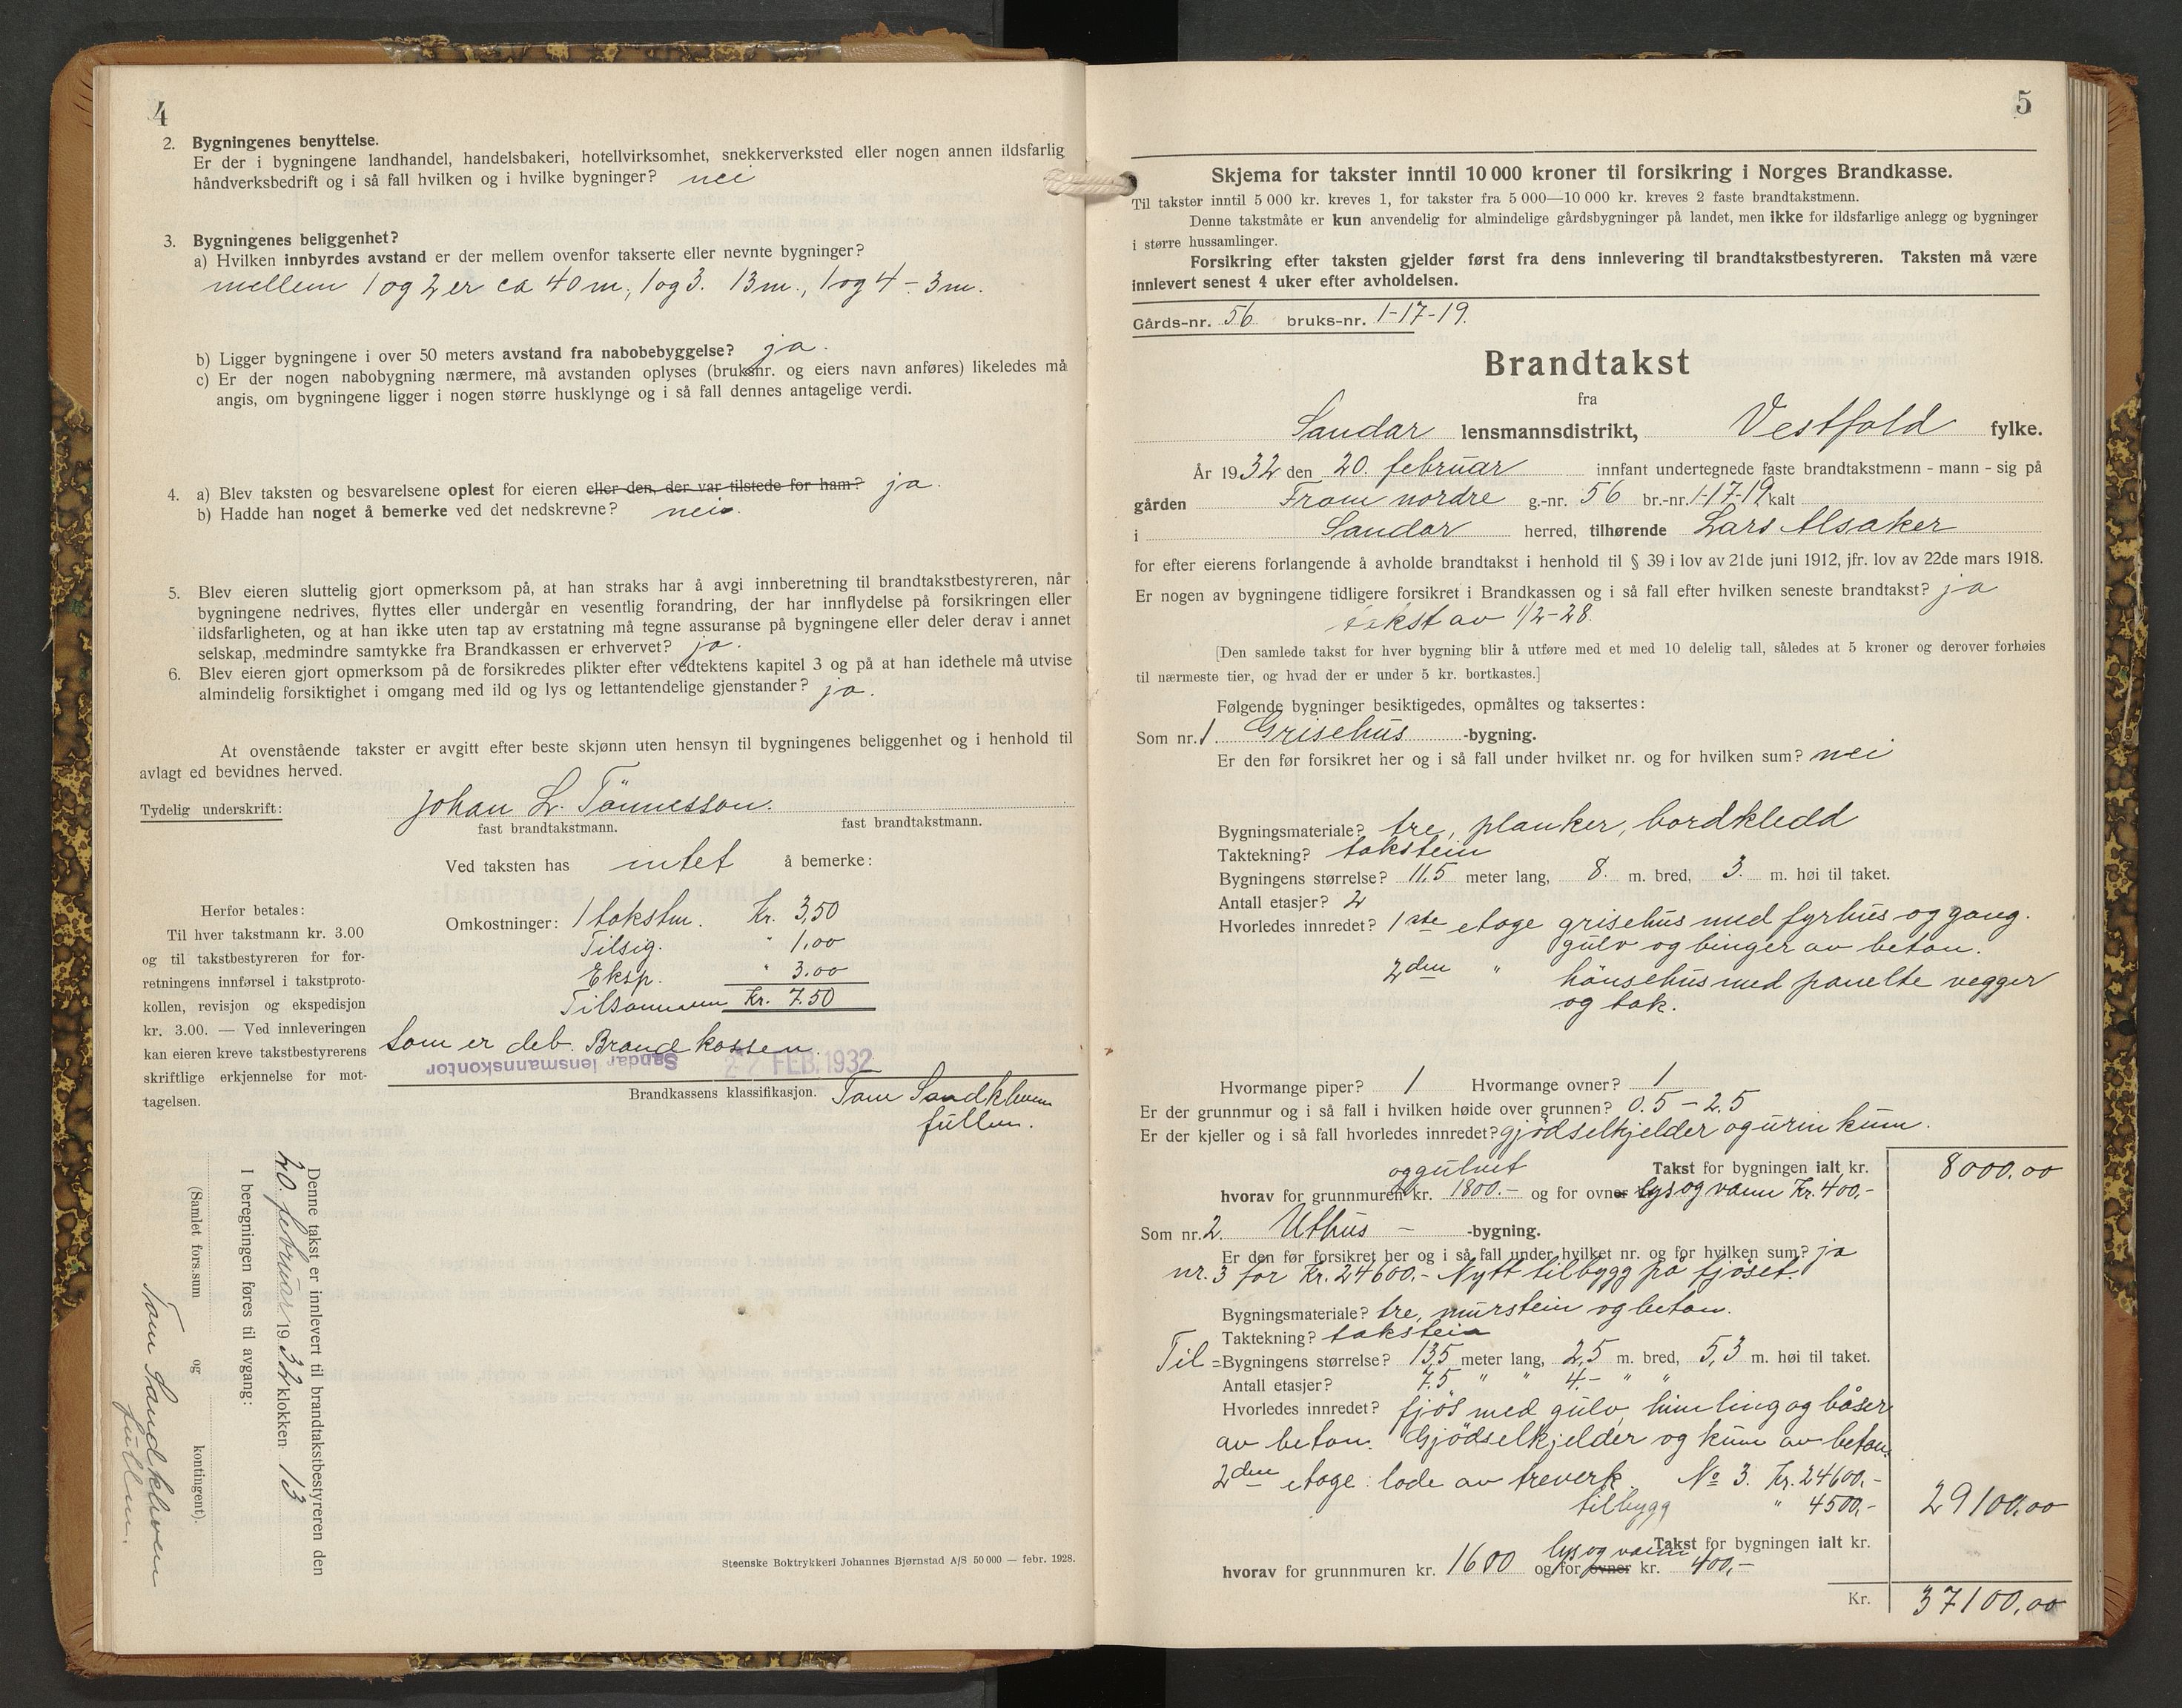 4
2. Bygningenes benyttelse.
Er der i bygningene landhandel, handelsbakeri, hotellvirksomhet, snekkerverksted eller nogen annen ildsfarlig
håndverksbedrift og i så fall hvilken og i hvilke bygninger? nei
3. Bygningenes beliggenhet?
a) Hvilken innbyrdes avstand er der mellem ovenfor takserte eller nevnte bygninger?
mellem 1 og 2 er ca 40 m, 1 og 3. 13 m., 1 og 4 - 3 m.
b) Ligger bygningene i over 50 meters avstand fra nabobebyggelse? ja.
c) Er der nogen nabobygning nærmere, må avstanden oplyses (bruksnr. og eiers navn anføres) likeledes må
angis, om bygningene ligger i nogen større husklynge og i så fall dennes antagelige verdi.
4. a) Blev taksten og besvarelsene oplest for eieren eller den, der var tilstede for ham? ja.
b) Hadde han noget å bemerke ved det nedskrevne? nei.
5. Blev eieren sluttelig gjort opmerksom på, at han straks har å avgi innberetning til brandtakstbestyreren, når
bygningene nedrives, flyttes eller undergår en vesentlig forandring, der har innflydelse på forsikringen eller
ildsfarligheten, og at han ikke uten tap av erstatning må tegne assuranse på bygningene eller deler derav i annet
selskap, medmindre samtykke fra Brandkassen er erhvervet? ja.
6. Blev eieren gjort opmerksom på de forsikredes plikter efter vedtektens kapitel 3 og på at han idethele må utvise
almindelig forsiktighet i omgang med ild og lys og lettantendelige gjenstander? ja.
At ovenstående takster er avgitt efter beste skjønn uten hensyn til bygningenes beliggenhet og i henhold til
avlagt ed bevidnes herved.
Tydelig underskrift: Johan L. Tönnesson.
fast brandtakstmann. fast brandtakstmann.
Ved taksten has intet å bemerke:
Herfor betales:
Til hver takstmann kr. 3.00
og til takstbestyreren for for-
retningens innførsel i takstproto-
kollen, revisjon og ekspedisjon
kr. 3.00. — Ved innleveringen
kan eieren kreve takstbestyrerens
skriftlige erkjennelse for mot-
tagelsen.
Omkostninger: 1 takstm. Kr. 3,50
Tilsig. " 1,00
Eksp. " 3.00
Tilsammen Kr. 7.50
som er deb. Brandkassen.
Sandar lensmannskontor
22 FEB. 1932
Brandkassens klassifikasjon. Tom Sandkleven
fullm.
Denne takst er innlevert til brandtakstbestyreren den
20. februar 1932 klokken 13
I beregningen føres til avgang:
(Samlet fors.sum og kontingent).
Tom Sandkleven
fullm.
Steenske Boktrykkeri Johannes Bjørnstad A/S 50 000 — febr. 1928.
5
Skjema for takster inntil 10 000 kroner til forsikring i Norges Brandkasse.
Til takster inntil 5 000 kr. kreves 1, for takster fra 5 000—10 000 kr. kreves 2 faste brandtakstmenn.
Denne takstmåte er kun anvendelig for almindelige gårdsbygninger på landet, men ikke for ildsfarlige anlegg og bygninger
i større hussamlinger.
Forsikring efter taksten gjelder først fra dens innlevering til brandtakstbestyreren. Taksten må være
innlevert senest 4 uker efter avholdelsen.
Gårds-nr. 56 bruks-nr. 1-17-19.
Brandtakst
fra
Sandar lensmannsdistrikt, Vestfold fylke.
År 1932 den 20. februar innfant undertegnede faste brandtakstmenn - mann - sig på
gården Fram nordre g.-nr. 56 br.-nr. 1-17-19 kalt
i Sandar herred, tilhørende Lars Alsaker
for efter eierens forlangende å avholde brandtakst i henhold til § 39 i lov av 21de juni 1912, jfr. lov av 22de mars 1918.
Er nogen av bygningene tidligere forsikret i Brandkassen og i så fall efter hvilken seneste brandtakst? ja
takst av 1/2-28.
[Den samlede takst for hver bygning blir å utføre med et med 10 delelig tall, således at 5 kroner og derover forhøies
til nærmeste tier, og hvad der er under 5 kr. bortkastes.]
Følgende bygninger besiktigedes, opmåltes og taksertes:
Som nr. 1. Grisehus -bygning.
Er den før forsikret her og i så fall under hvilket nr. og for hvilken sum? nei
Bygningsmateriale? tre, planker, bordkledd
Taktekning? takstein
Bygningens størrelse? 11,5 meter lang, 8. m. bred, 3. m. høi til taket.
Antall etasjer? 2
Hvorledes innredet? 1ste etage grisehus med fyrhus og gang.
gulv og binger av beton.
2den " hönsehus med panelte vegger
og tak.
Hvormange piper? 1 Hvormange ovner? 1
Er der grunnmur og i så fall i hvilken høide over grunnen? 0.5 - 2.5
Er der kjeller og i så fall hvorledes innredet? gjödselkjelder og urin kum.
Takst for bygningen ialt kr. 8000.00
og gulvet
hvorav for grunnmuren kr. 1800.- og for ovner lys og vann Kr. 400,-
Som nr. 2. Uthus - -bygning.
Er den før forsikret her og i så fall under hvilket nr. og for hvilken sum? ja
nr. 3 for Kr. 24600.- Nytt tilbygg på fjöset.
Bygningsmateriale? tre, murstein og beton.
Taktekning? takstein
Til = Bygningens størrelse? 13,5 meter lang, 2,5 m. bred, 5,3 m. høi til taket.
Antall etasjer? 7.5 " " 4.- " "
Hvorledes innredet? fjös med gulv, himling og båser
av beton. Gjödselkjelder og kum av beton.
2den etage: lade av treverk No 3. Kr. 24600.-
tilbygg " 4500,- 29100,00
lys og vann Takst for bygningen ialt kr.
hvorav for grunnmuren kr. 1600 og for ovner kr. 400,-
Kr. 37100,00